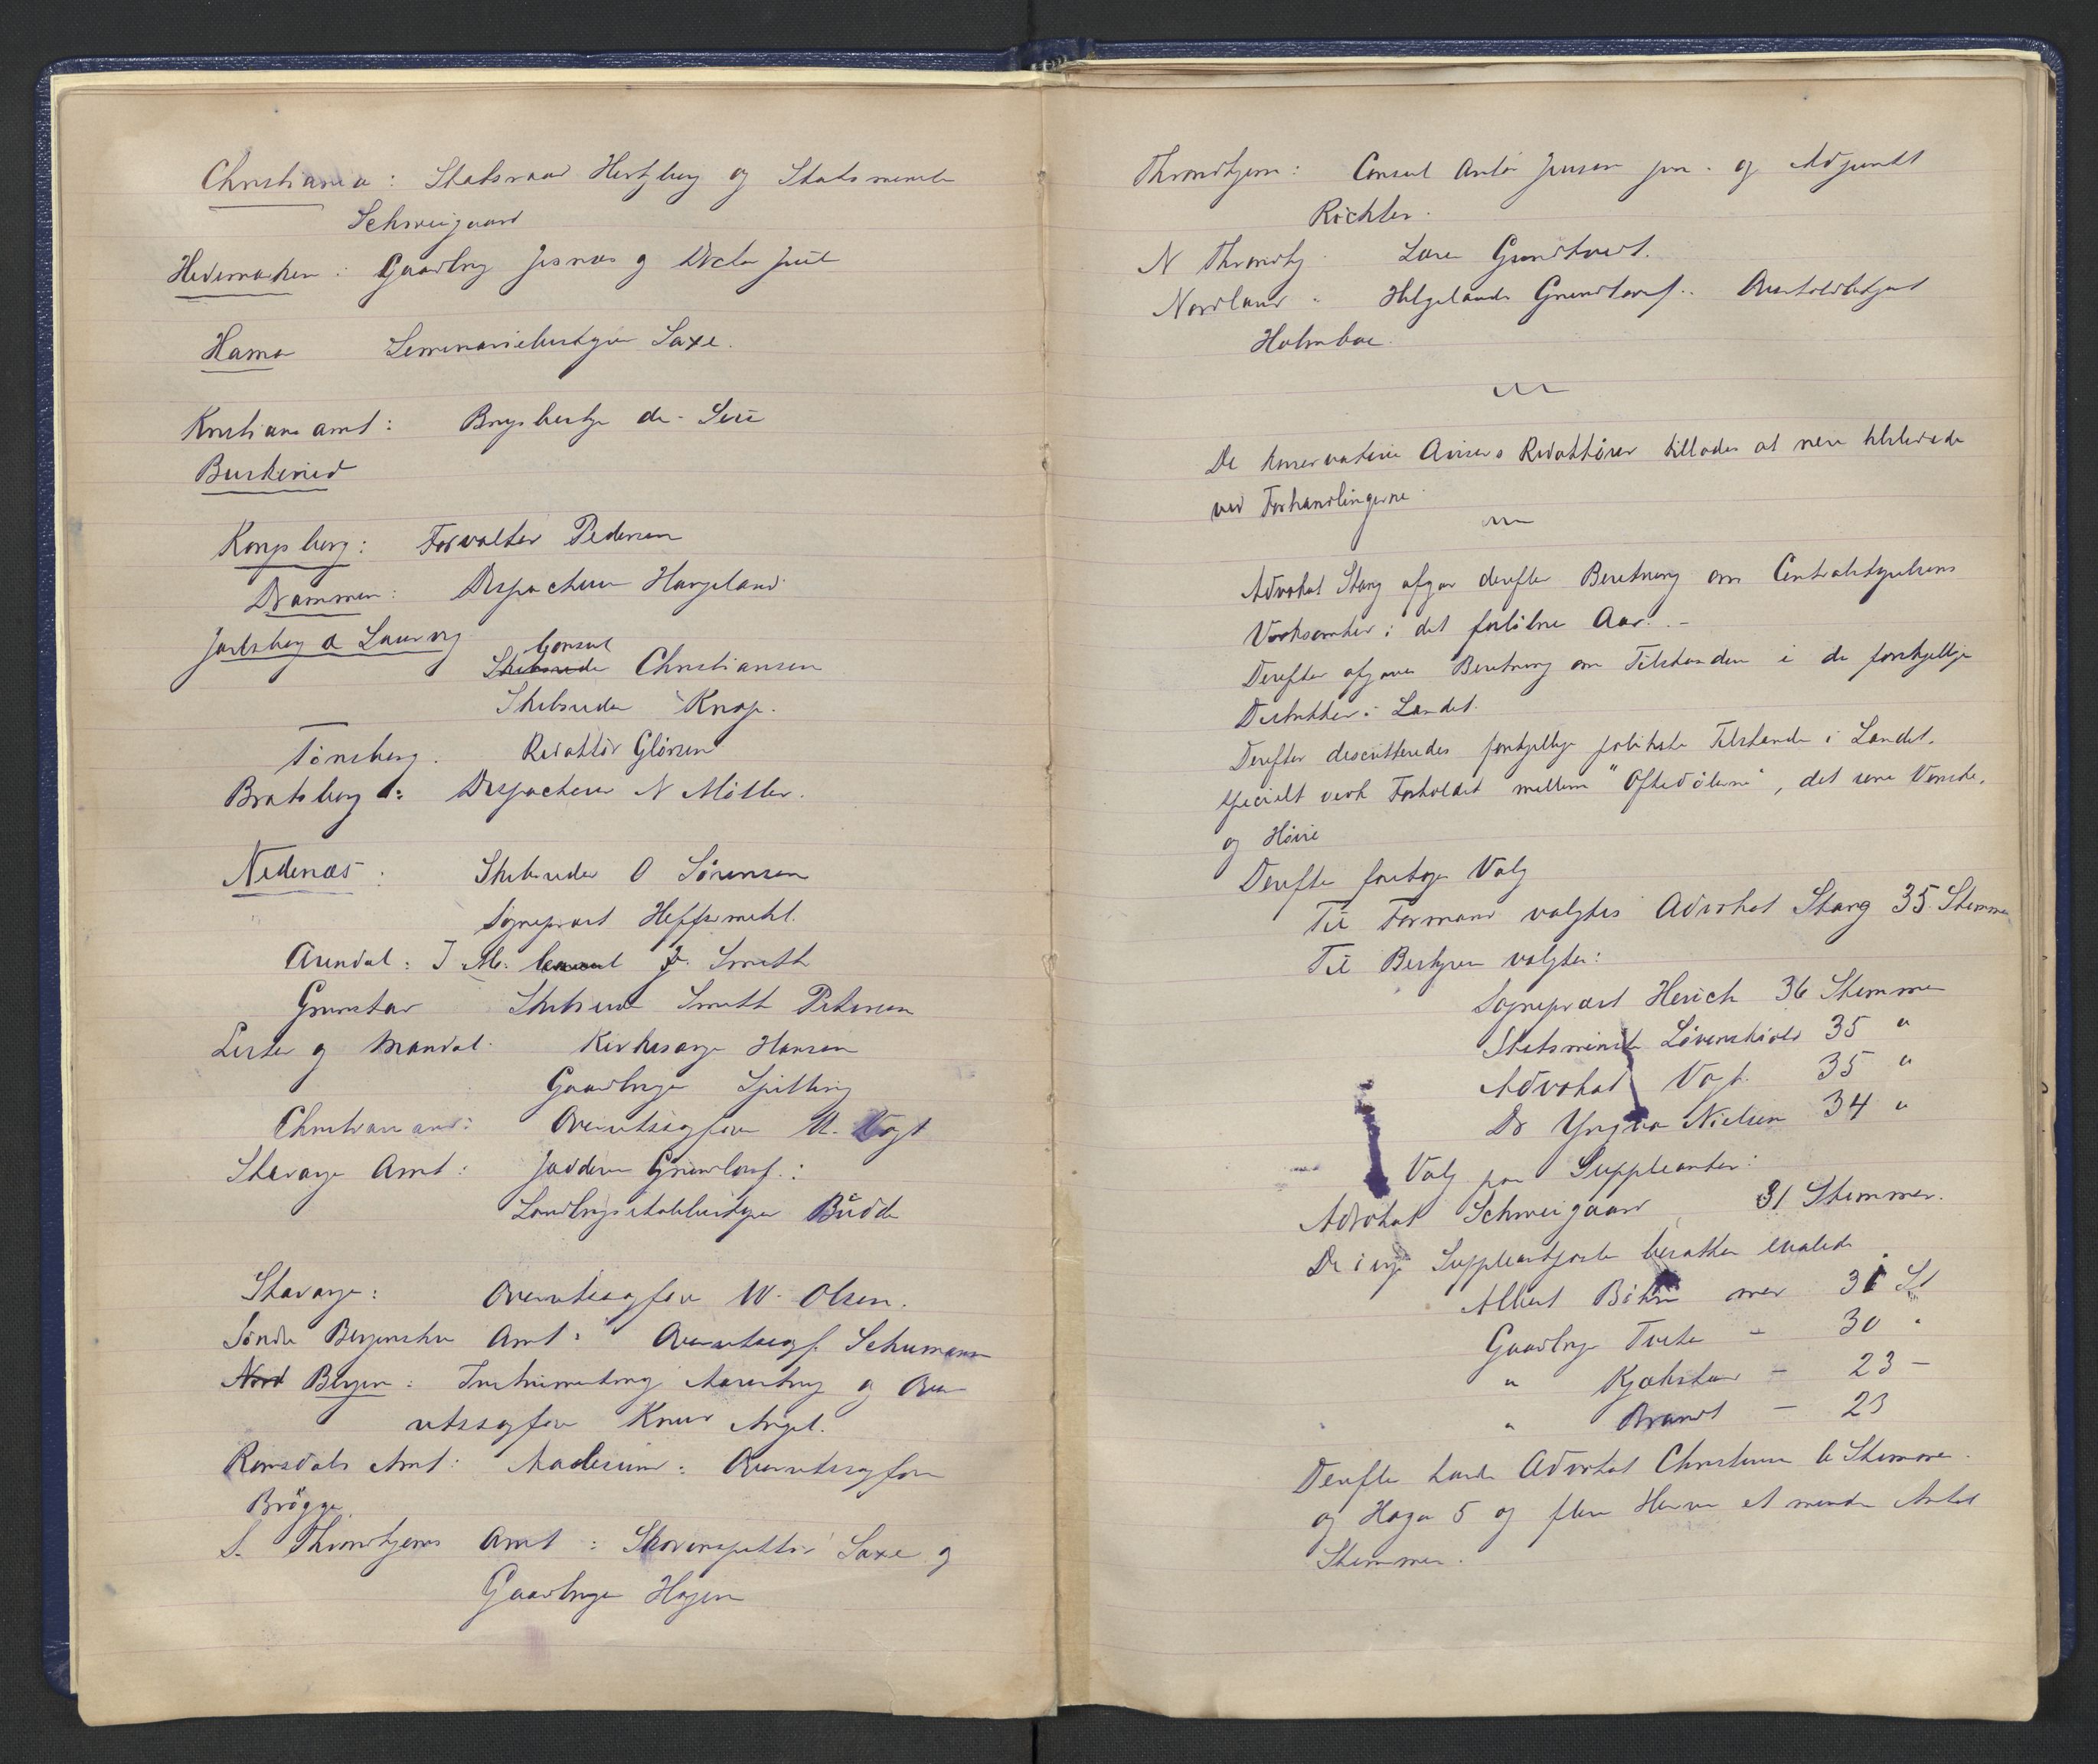 Christiania : Statsraad Hertzberg og Statsminister
Schweigaard
Hedemarken : Gaardbrug Jesnæs og Doctor Juel
Hamar Seminariebestyrer Saxe.
Kristians amt : Brugsbestyr de Seue
Buskerud
Kongsberg : Forvalter Pedersen
Drammen : Dispacheur Haugeland
Jarlsberg & Laurvig
Consul
Skibsreder Christiansen
Skibsreder Knap.
Tønsberg. Redaktør Glørsen
Bratsberg : Dispacheur N Møller.
Nedenæs : Skibsreder O Sørensen
Sognepræst Heffermehl.
Arendal : J. M. Consul J. Smith
Grimstad Skibsred Smith Petersen
Lister og Mandal. Kirkesange Hansen
Gaardbruger Spilling
Christiansand : Overretssagfører M. Vogt
Stavange Amt : Jædderen Grundlovsf. :
Landbrugsskolebestyrer Budde
Stavange : Overretssagfører W. Olsen.
Søndre Bergenshu Amt : Overretssagf. Schumann
Nord Bergen : Instrumentmag Aarestrup og Over
retssagfører Knud Angel.
Romsdals Amt : Aalesund : Overretssagfører
Brøgge
S. Throndhjems Amt : Skovinspektør Saxe og
Gaardbruger Hagen
Throndhjem : Consul Anton Jensen jun. og Adjunkt
Richter.
N Throndhj. Lars Grundtvedt.
Nordland : Helgelands Grundlovsf. : Amtsfuldmægt
Holmboe.
De konservative Avisers Redaktører tillodes at være tilstede
ved Forhandlingerne.
Advokat Stang afgav derefter Beretning om Centralstyrelsens
Virksomhed i det forløbne Aar. –
Derefter afgaves Beretning om Tilstanden i de forskjellige
Distrikter i Landet.
Derefter discutteredes forskjellige politiske Tilstande i Landet,
specielt vedk Forholdet mellem "Oftedølerne", det rene Venstre,
og Høire
Derefter foretoges Valg
Til Formand valgtes Advokat Stang 35 Stemmer
Til Bestyrere valgtes :
Sognepræst Heuch 36 Stemmer
Statsminister Løvenskiold 35 "
Advokat Vogt. 35 "
Dr Yngvar Nielsen 34 "
Valg paa Suppleanter :
Advokat Schweigaard, 31 Stemmer.
De øvrige Suppleantposter besattes saaledes
Albert Bøhn med 31 St
Gaardbruger Tveter – 30 "
" Kjølstad – 23 –
" Brandt – 23
Derefter havde Advokat Christensen 6 Stemmer
og Hagen 5 og flere Herrer et mindre Antal
Stemmer.